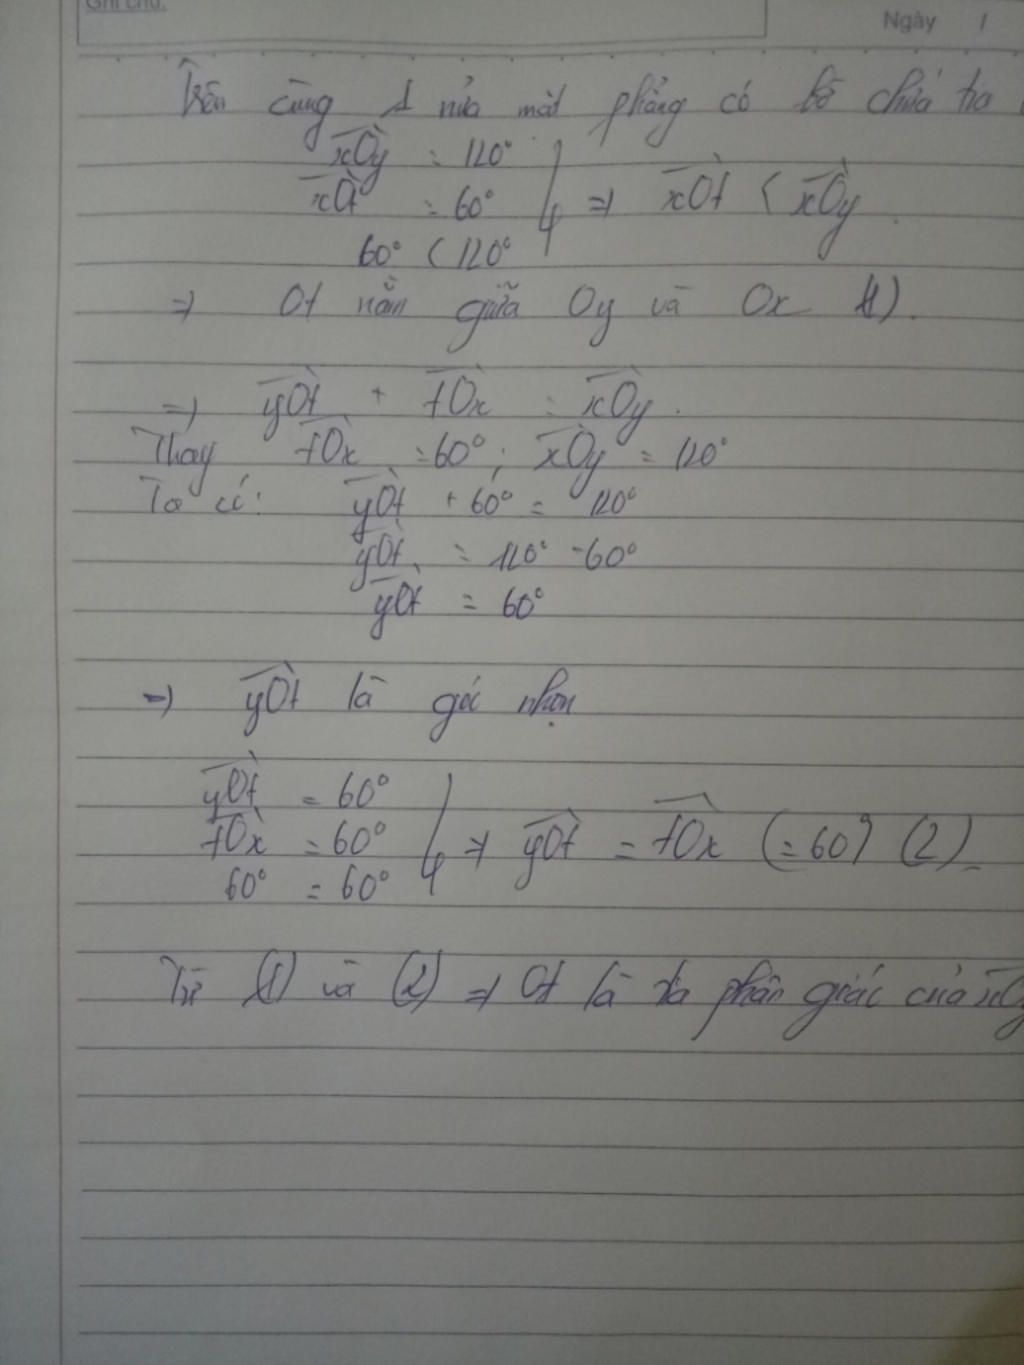 Ghi chú:
Ngày /
Trên cùng 1 nửa mặt phẳng có bờ chứa tia
xOy = 120°
xOt = 60° => xOt < xOy.
60° < 120°
=> Ot nằm giữa Oy và Ox (1).
=> yOt + tOx = xOy.
Thay tOx = 60° ; xOy = 120°
Ta có: yOt + 60° = 120°
yOt = 120° - 60°
yOt = 60°
=> yOt là góc nhọn
yOt = 60°
tOx = 60° => yOt = tOx (= 60°) (2)
60° = 60°
Từ (1) và (2) => Ot là tia phân giác của xOy